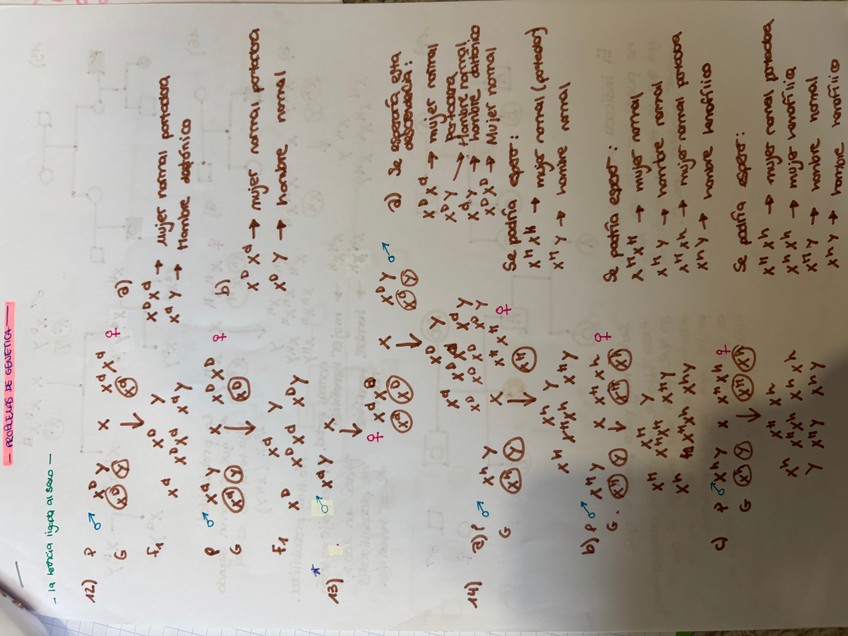 - PROBLEMAS DE GENÉTICA -
- la herencia ligada al sexo -
12) P ♂ X^D Y x X^d X^d ♀
G X^D Y ↓ X^d
F1 X^D Y
X^d X^D X^d X^d Y
a)
X^D X^d → Mujer normal portadora
X^d Y → Hombre daltónico
P ♂ X^d Y x X^D X^D ♀
G X^d Y ↓ X^D
F1 X^d Y
X^D X^D X^d X^D Y
b)
X^D X^d → mujer normal portadora
X^D Y → hombre normal
*
13) ♂ X^d Y x
♀ X^d X^D x X^D Y ♂
X^d X^D ↓ X^D Y
X^D Y
X^d X^D X^d X^d Y
X^D X^D X^D X^D Y
a) Se esperaría esta
descendencia:
X^D X^d → mujer normal
portadora
X^D Y → Hombre normal
X^d Y → hombre daltónico
X^D X^D → Mujer normal
14) a) P ♂ X^h Y x X^H X^H ♀
G X^h Y ↓ X^H
X^h Y
X^H X^H X^h X^H Y
Se podría esperar:
X^H X^h → mujer normal (portador)
X^H Y → hombre normal
b) P ♂ X^H Y x X^H X^h ♀
G. X^H Y ↓ X^H X^h
X^H Y
X^H X^H X^H X^H Y
X^h X^H X^h X^h Y
Se podría esperar:
X^H X^H → mujer normal
X^H Y → hombre normal
X^H X^h → mujer normal portadora
X^h Y → hombre hemofílico
c) P ♂ X^h Y x X^H X^h ♀
G X^h Y ↓ X^H X^h
X^H X^h
X^h X^H X^h X^h X^h
Y X^H Y X^h Y
Se podría esperar:
X^H X^h → mujer normal portadora
X^h X^h → mujer hemofílica
X^H Y → hombre normal
X^h Y → hombre hemofílico